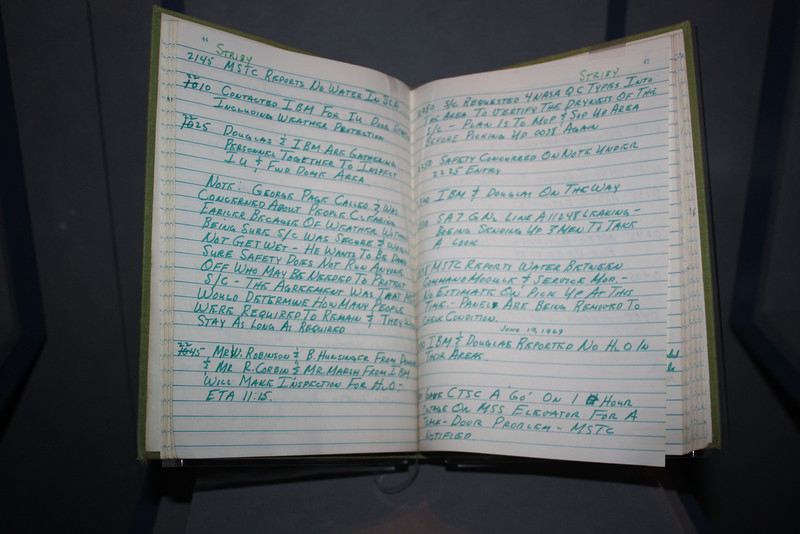 44
STRIBY
2145 MSTC REPORTS NO WATER IN SLA
2210 CONTACTED IBM FOR IU DOOR
INCLUDING WEATHER PROTECTION
2225 DOUGLAS & IBM ARE GATHERING
PERSONNEL TOGETHER TO INSPECT
I.U & FWD DOME AREA.
NOTE: GEORGE PAGE CALLED & WAS
CONCERNED ABOUT PEOPLE CLEARING
EARLIER BECAUSE OF WEATHER WITHOUT
BEING SURE S/C WAS SECURE & WOULD
NOT GET WET - HE WANTS TO BE DAMN
SURE SAFETY DOES NOT RUN ANYONE
OFF WHO MAY BE NEEDED TO PROTECT
S/C - THE AGREEMENT WAS THAT
WOULD DETERMINE HOW MANY PEOPLE
WERE REQUIRED TO REMAIN & THEY
STAY AS LONG AS REQUIRED
2245 MR W. ROBINSON & B. HUNSINGER FROM
& MR R. CORBIN & MR. MARSH FROM IBM
WILL MAKE INSPECTION FOR H2O -
ETA 11:15.
STRIBY
2250 S/C REQUESTED 4 NASA QC TYPES INTO
AREA TO VERIFY THE DRYNESS OF THE
S/C - PLAN IS TO MOP & SOP UP AREA
BEFORE PICKING UP 0038 AGAIN
SAFETY CONCURRED ON NOTE UNDER
2225 ENTRY
IBM & DOUGLAS ON THE WAY
SA7 GN2 LINE A11248 LEAKING -
BOEING SENDING UP 3 MEN TO TAKE
A LOOK
MSTC REPORTS WATER BETWEEN
COMMAND MODULE & SERVICE MOD -
NO ESTIMATE ON PICK UP AT THIS
TIME - PANELS ARE BEING REMOVED TO
CHECK CONDITION.
JUNE 19, 1969
IBM & DOUGLAS REPORTED NO H2O IN
THEIR AREAS.
GAVE CTSC A 'GO' ON 1 HOUR
OUTAGE ON MSS ELEVATOR FOR A
DOOR PROBLEM - MSTC
NOTIFIED